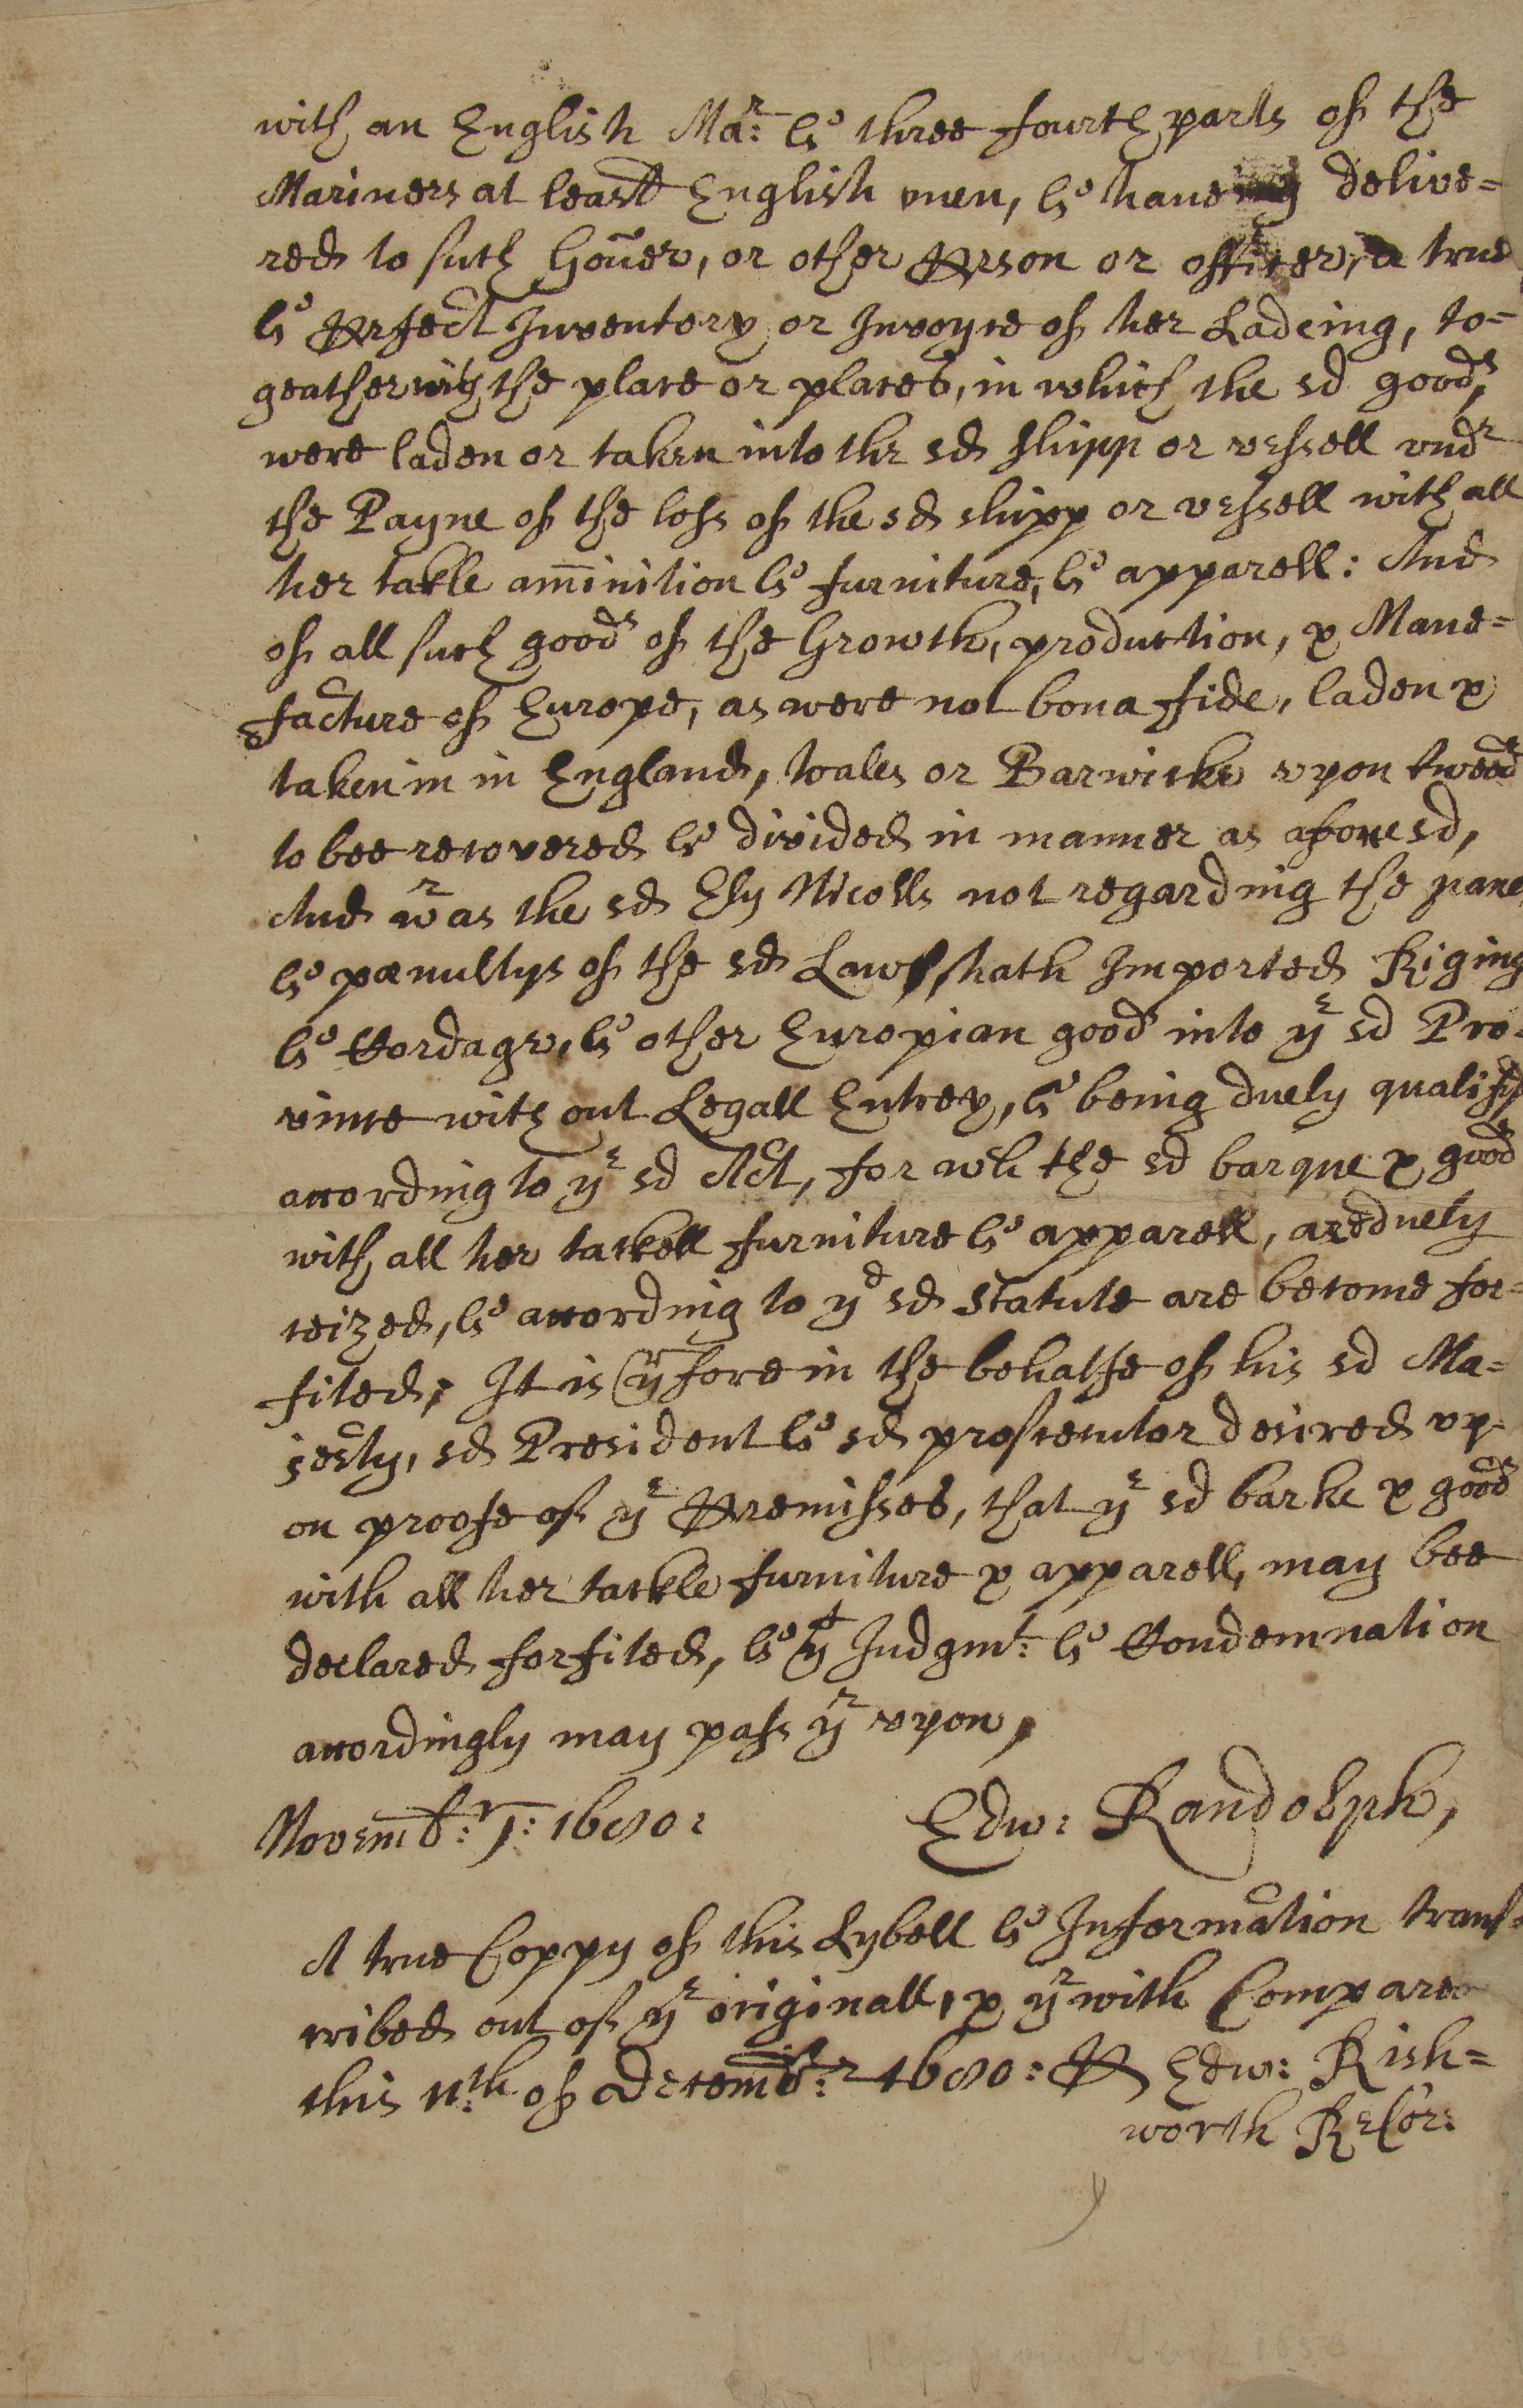 with an English Mar: & three fourth parts of the
Mariners at least English men, & haueing delive=
red to such Gouer, or other prson or officer, a true
& prfect Inventory or Invoyce of her Ladeing, to=
geather with the place or places, in which the sd goods,
were laden or taken into the sd shipp or vessell undr
the Payne of the loss of the sd shipp or vessell with all
her takle aminition & furniture, & apparell: And
of all such goods of the Growth, production, & Mane=
facture of Europe, as were not bona fide, laden &
taken in in England, Wales or Barwicke upon tweed
to bee recovered & divided in manner as aforesd,
And wras the sd Ely Nicolls not regarding the pane
& pænultys of the sd Law, hath Imported Riging
& Cordage, & other Europian goods into ye sd Pro=
vince with out Legall Entrey, & being duely qualifyd
according to ye sd Act, for wch the sd barque & goods
with all her tackell furniture & apparell, are duely
ceized, & according to ye sd Statute are become for=
fited, It is yrfore in the behalfe of his sd Ma=
jesty, sd President & sd prosecutor desired up=
on proofe of ye premisses, that ye sd barke & goods
with all her tackle furniture & apparell, may bee
declared forfited, & yt Judgmt: & Condemnation
accordingly may pass yr upon,
Novembr: 7: 1680:
Edw: Randolph,
A true Coppy of this Lybell & Information trans=
cribed out of ye originall, & yr with Compared
this 11th: of Decembr: 1680: p Edw: Rish=
worth ReCor: